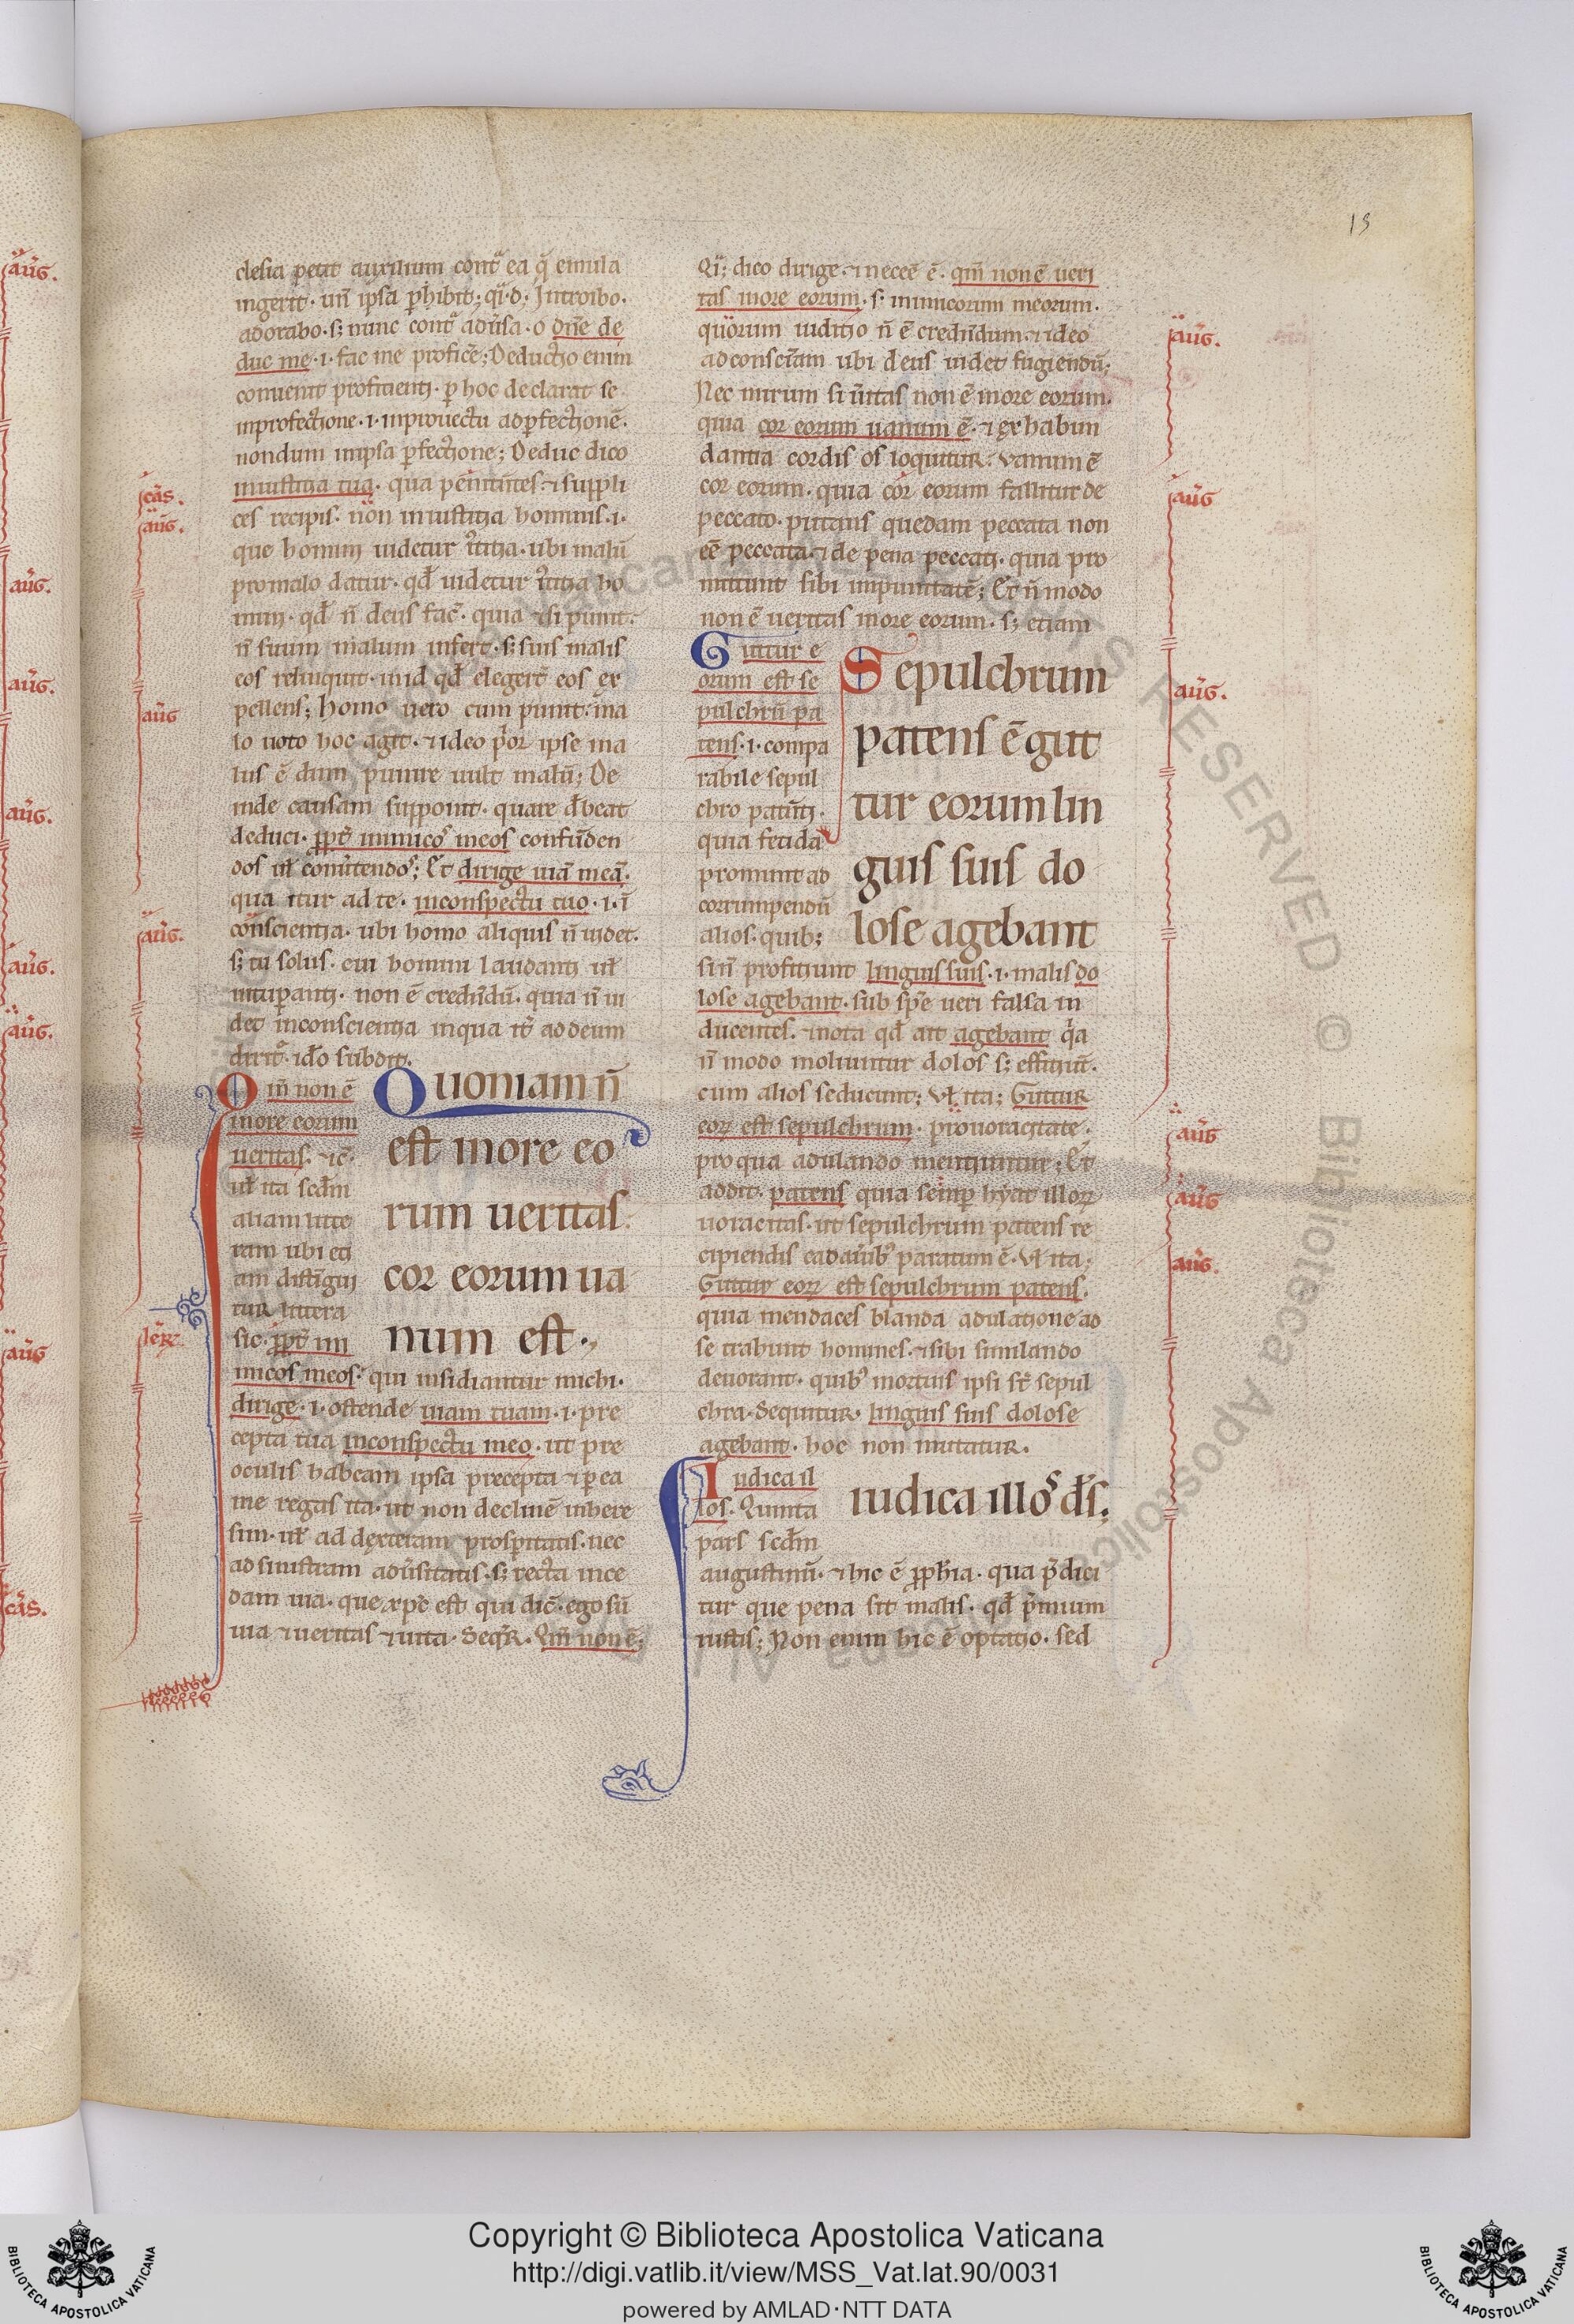 13
clesia petit auxilium contᵃ ea q̄ emula
ingerit· un̄ ipsa ꝓhibit; qͣ·d· Introibo·
adorabo·s; nunc contᵃ adūsa·o dn̄e de
duc me·i·fac me proficē; Deductio enim
conuenit proficienti· ꝑ hoc declarat se
inprofectione·i·inprouectu adꝑfectionē·
nondum inipsa ꝑfectione; Deduc dico
iniustitia tua· qua penitūtes ⁊suppli
ces recipis· non iniustitia hominis·i·
que homini uidetur iꝰtitia·ubi malū
promalo datur·qd̄ uidetur iꝰtitia ho
mini·qd̄ n̄ deus fac̄· quia ⁊si punit·
n̄ suum malum infert·s; suis malis
eos relinquit· und qd̄ elegert̄ eos ex
pellens; homo uero cum punit· ma
lo uoto hoc agit·⁊ideo pͥor ipse ma
lus ē dum punire uult malū; De
inde causam supponit· quare d̄beat
deduci· ꝓpt̄ inimicoꝰ meos confūden
dos ul̄ cōnūtendoꝰ; Et dirige uiā meā·
qua itur ad te· inconspectu tuo·i·ī
conscientia· ubi homo aliquis n̄ uidet·
s; tu solus· cui homini laudanti ul̄
uituꝑanti· non ē credūdū· quia n̄ ui
det inconscientia inqua it̄ addeum
dirit̄· id̄o subdit·
Qm̄ non ē
more eorum
ueritas· ⁊c̄·
ul̄ ita scd̄m
aliam litte
ram ubi eti
am distīgui
tur littera
sic· ꝓpt̄ ini
Quoniam n̄
est more eo
rum ueritas·
cor eorum ua
num est·
micos meos· qui insidiantur michi·
dirige·i·ostende uiam tuam·i·pre
cepta tua inconspectu meo·ut pre
oculis habeam ipsa precepta ⁊ꝑea
me regas ita·ut non declinē inhere
sim·ul̄ ad dexteram prosꝑitatis·nec
adsinistram adūsitatis·s; recta ince
dam uia·que xp̄c est qui dic̄·ego sū
uia ⁊ueritas ⁊uita·Seqͬ· Qm̄ non ē;
Qͥ; dico dirige·⁊necee ē· qm̄ non ē ueri
tas more eorum·s; inimicorum meorum·
quorum iuditio n̄ ē credūdum·⁊ideo
adconsciam ubi deus uidet fugiendū;
Nec mirum si ūitas non ē more eorum·
quia cor eorum uanum ē·⁊exhabun
dantia cordis os loquitur· Vanum ē
cor eorum·quia cor eorum fallitur de
peccato·putans quedam peccata non
eē peccata·⁊de pena peccati·quia pro
mittunt sibi impunitatē; Et n̄ modo
non ē ueritas more eorum·s; etiam
Guttur e
orum est se
pulchrū pa
tens·i·compa
rabile sepul
chro patenti·
quia fetida
promunt ad
corrumpendū
alios·quib;
Sepulchrum
patens ē gut
tur eorum lin
guis suis do
lose agebant
sin̄ profitiunt linguis suis·i·malis do
lose agebant·sub spē ueri falsa in
ducentes·⁊nota qd̄ ait agebant qͥa
n̄ modo moliuntur dolos s; efficiūt·
cum alios seducunt; Vl̄ ita; Guttur
eoꝝ est sepulchrum· prouoracitate·
proqua adulando mentiuntur; Et
addit· patens quia semꝑ hyat illoꝝ
uoracitas·ut sepulchrum patens re
cipiendis cadaūibꝰ paratum ē·Vl̄ ita·
Guttur eoꝝ est sepulchrum patens·
quia mendaces blanda adulatione ad
se trahunt homines·⁊sibi similando
deuorant· quibꝰ mortuis ipsi st̄ sepul
chra·Sequitur· linguis suis dolose
agebant· hoc non mutatur·
Iudica il
los·Quinta
pars scd̄m
iudica illoꝰ d̄s;
augustinū·⁊hic ē ꝓph̄ia·qua p̄dici
tur que pena sit malis·qd̄ p̄mium
iustis; Non enim hic ē optatio·sed
cas̄.
aūg.
aūg
aūg.
ler̄.
aūg.
aūg
aūg.
aūg
aūg
aūg.
aūg.
aūg.
aūg.
aūg.
aūg.
aūg.
aūg
cas̄.
Copyright © Biblioteca Apostolica Vaticana
http://digi.vatlib.it/view/MSS_Vat.lat.90/0031
powered by AMLAD·NTT DATA
BIBLIOTECA APOSTOLICA VATICANA
BIBLIOTECA APOSTOLICA VATICANA